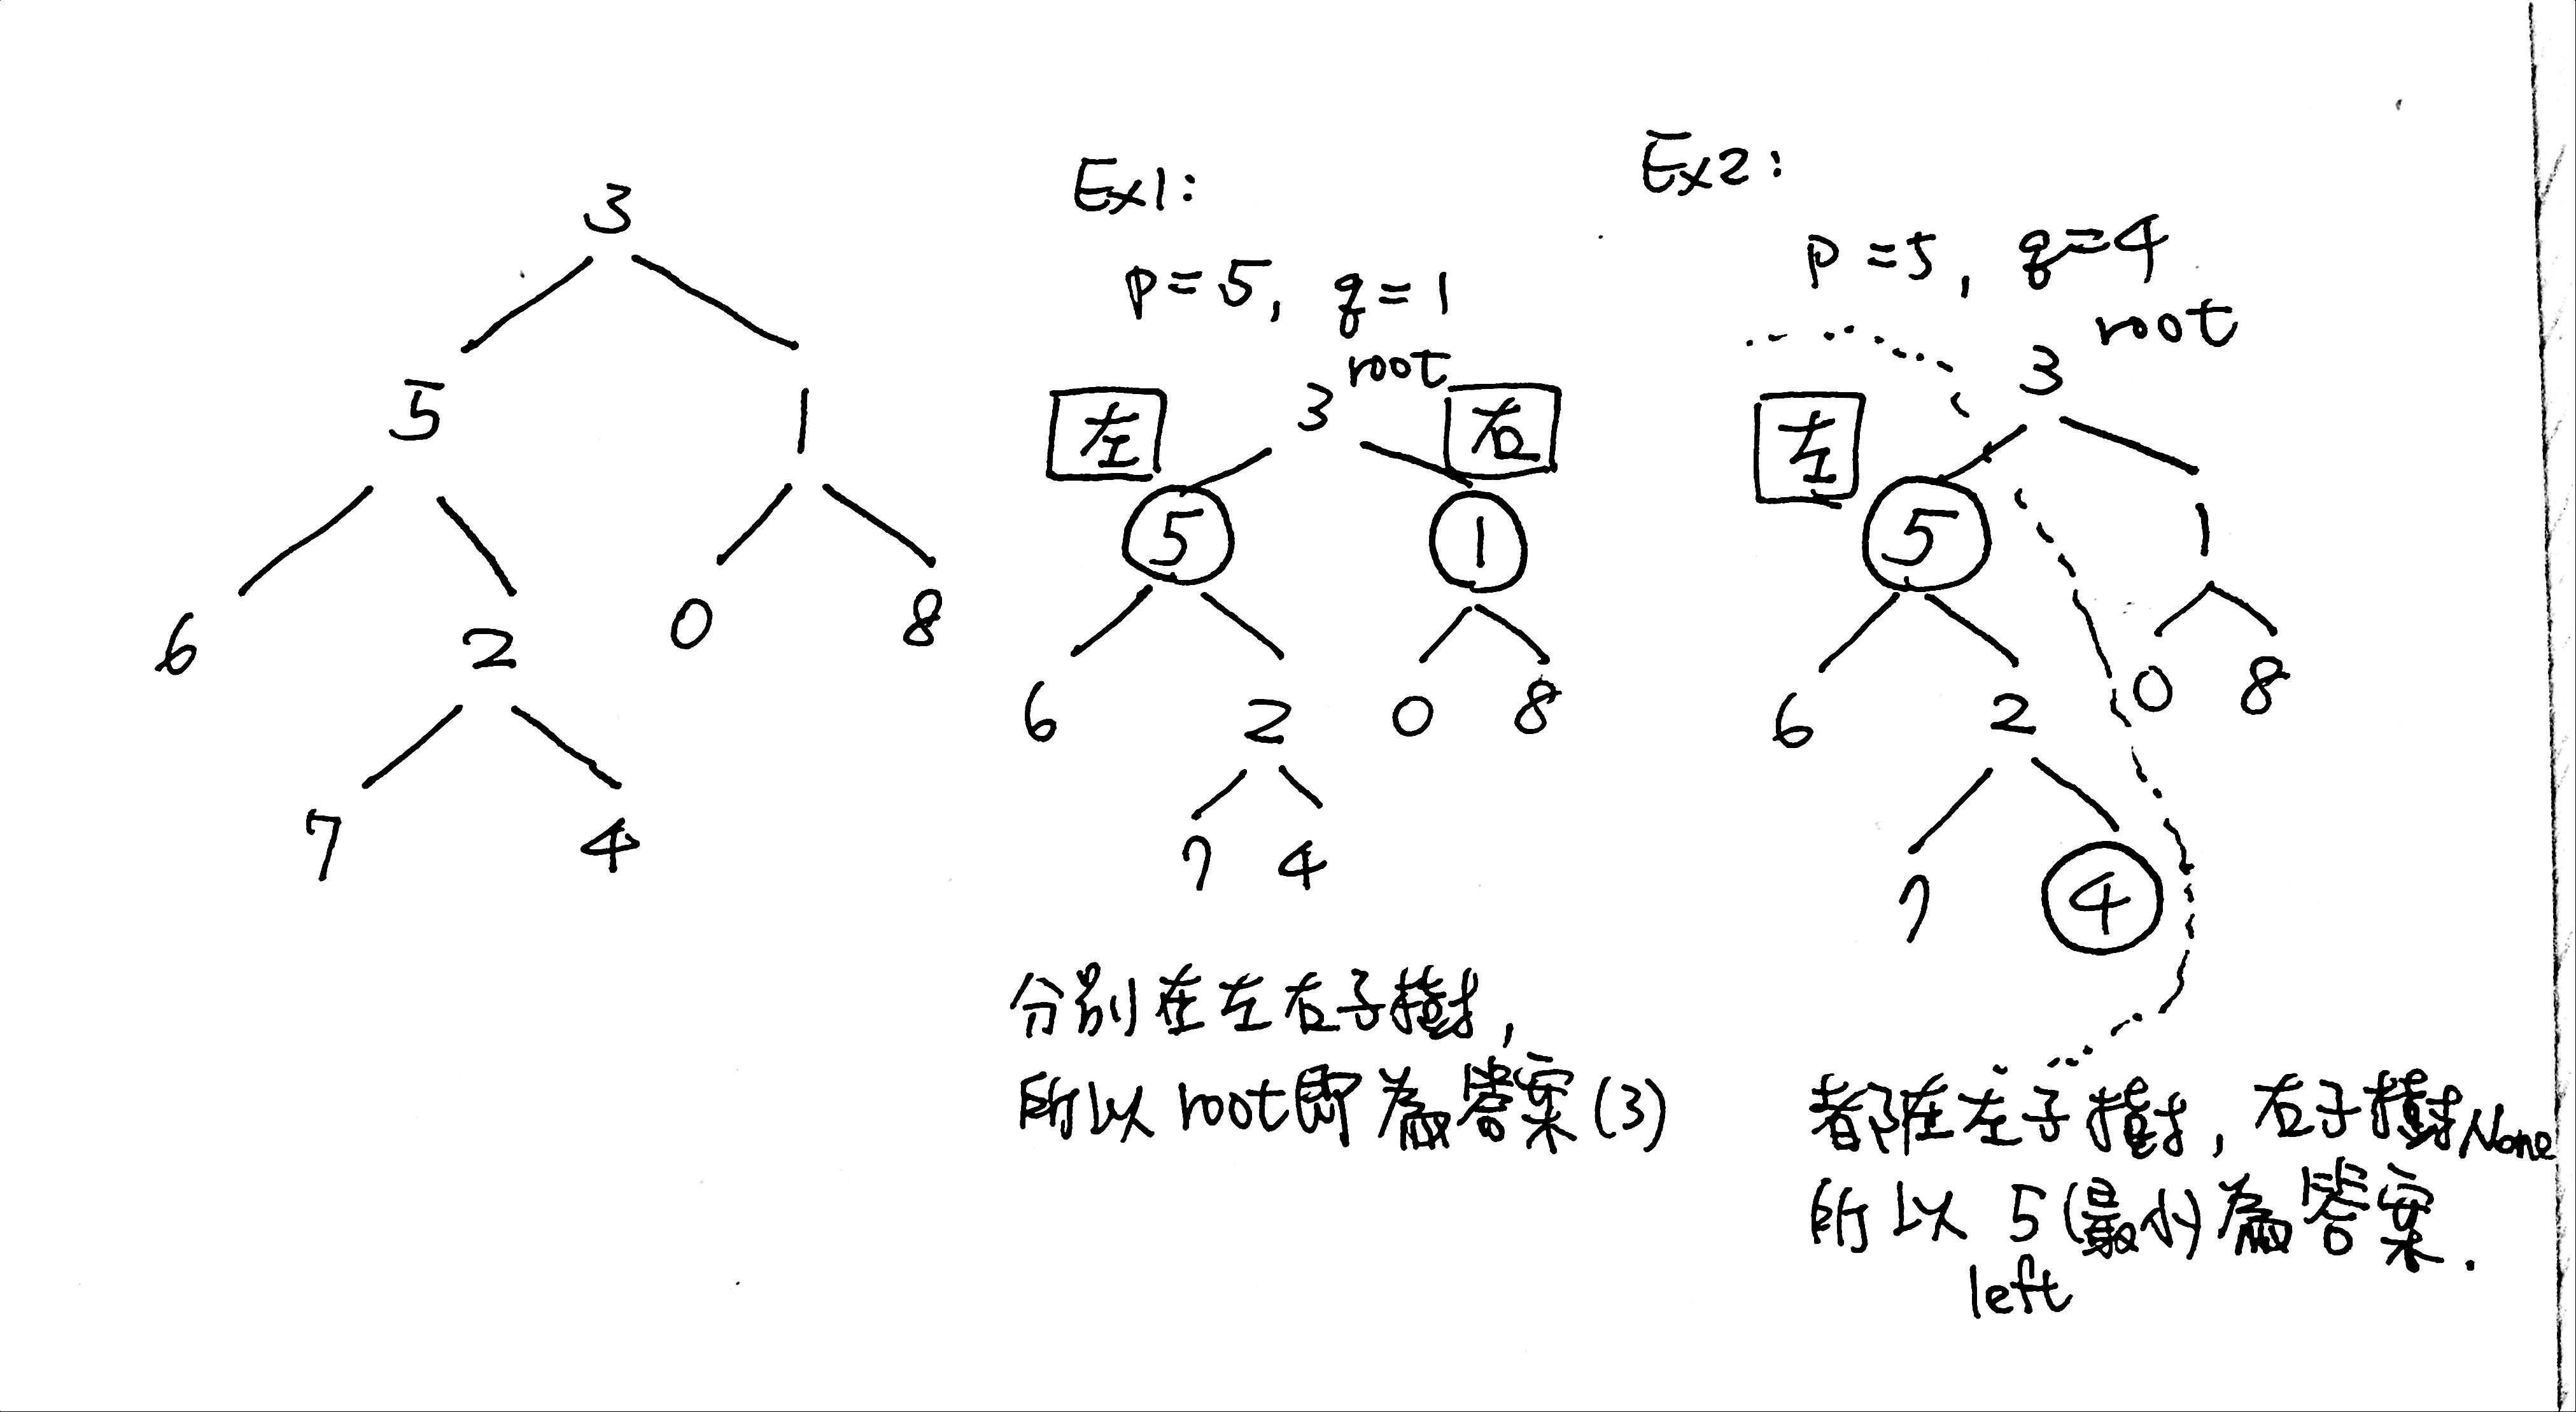 3
5 1
6 2 0 8
7 4
Ex1:
p=5, q=1
root
3
左 右
5 1
6 2 0 8
7 4
分別在左右子樹,
所以 root 即為答案(3)
Ex2:
p=5, q=4
root
3
左
5 1
6 2 0 8
7 4
都在左子樹, 右子樹None
所以 5(最小)為答案.
left